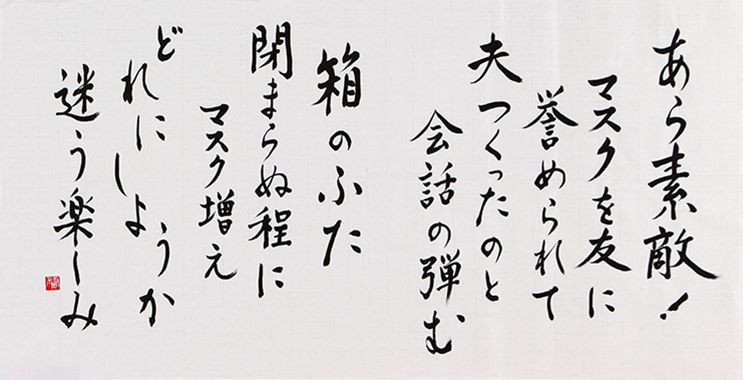 あら素敵！
マスクを友に
誉められて
夫つくったのと
会話の弾む
箱のふた
閉まらぬ程に
マスク増え
どれにしようか
迷う楽しみ